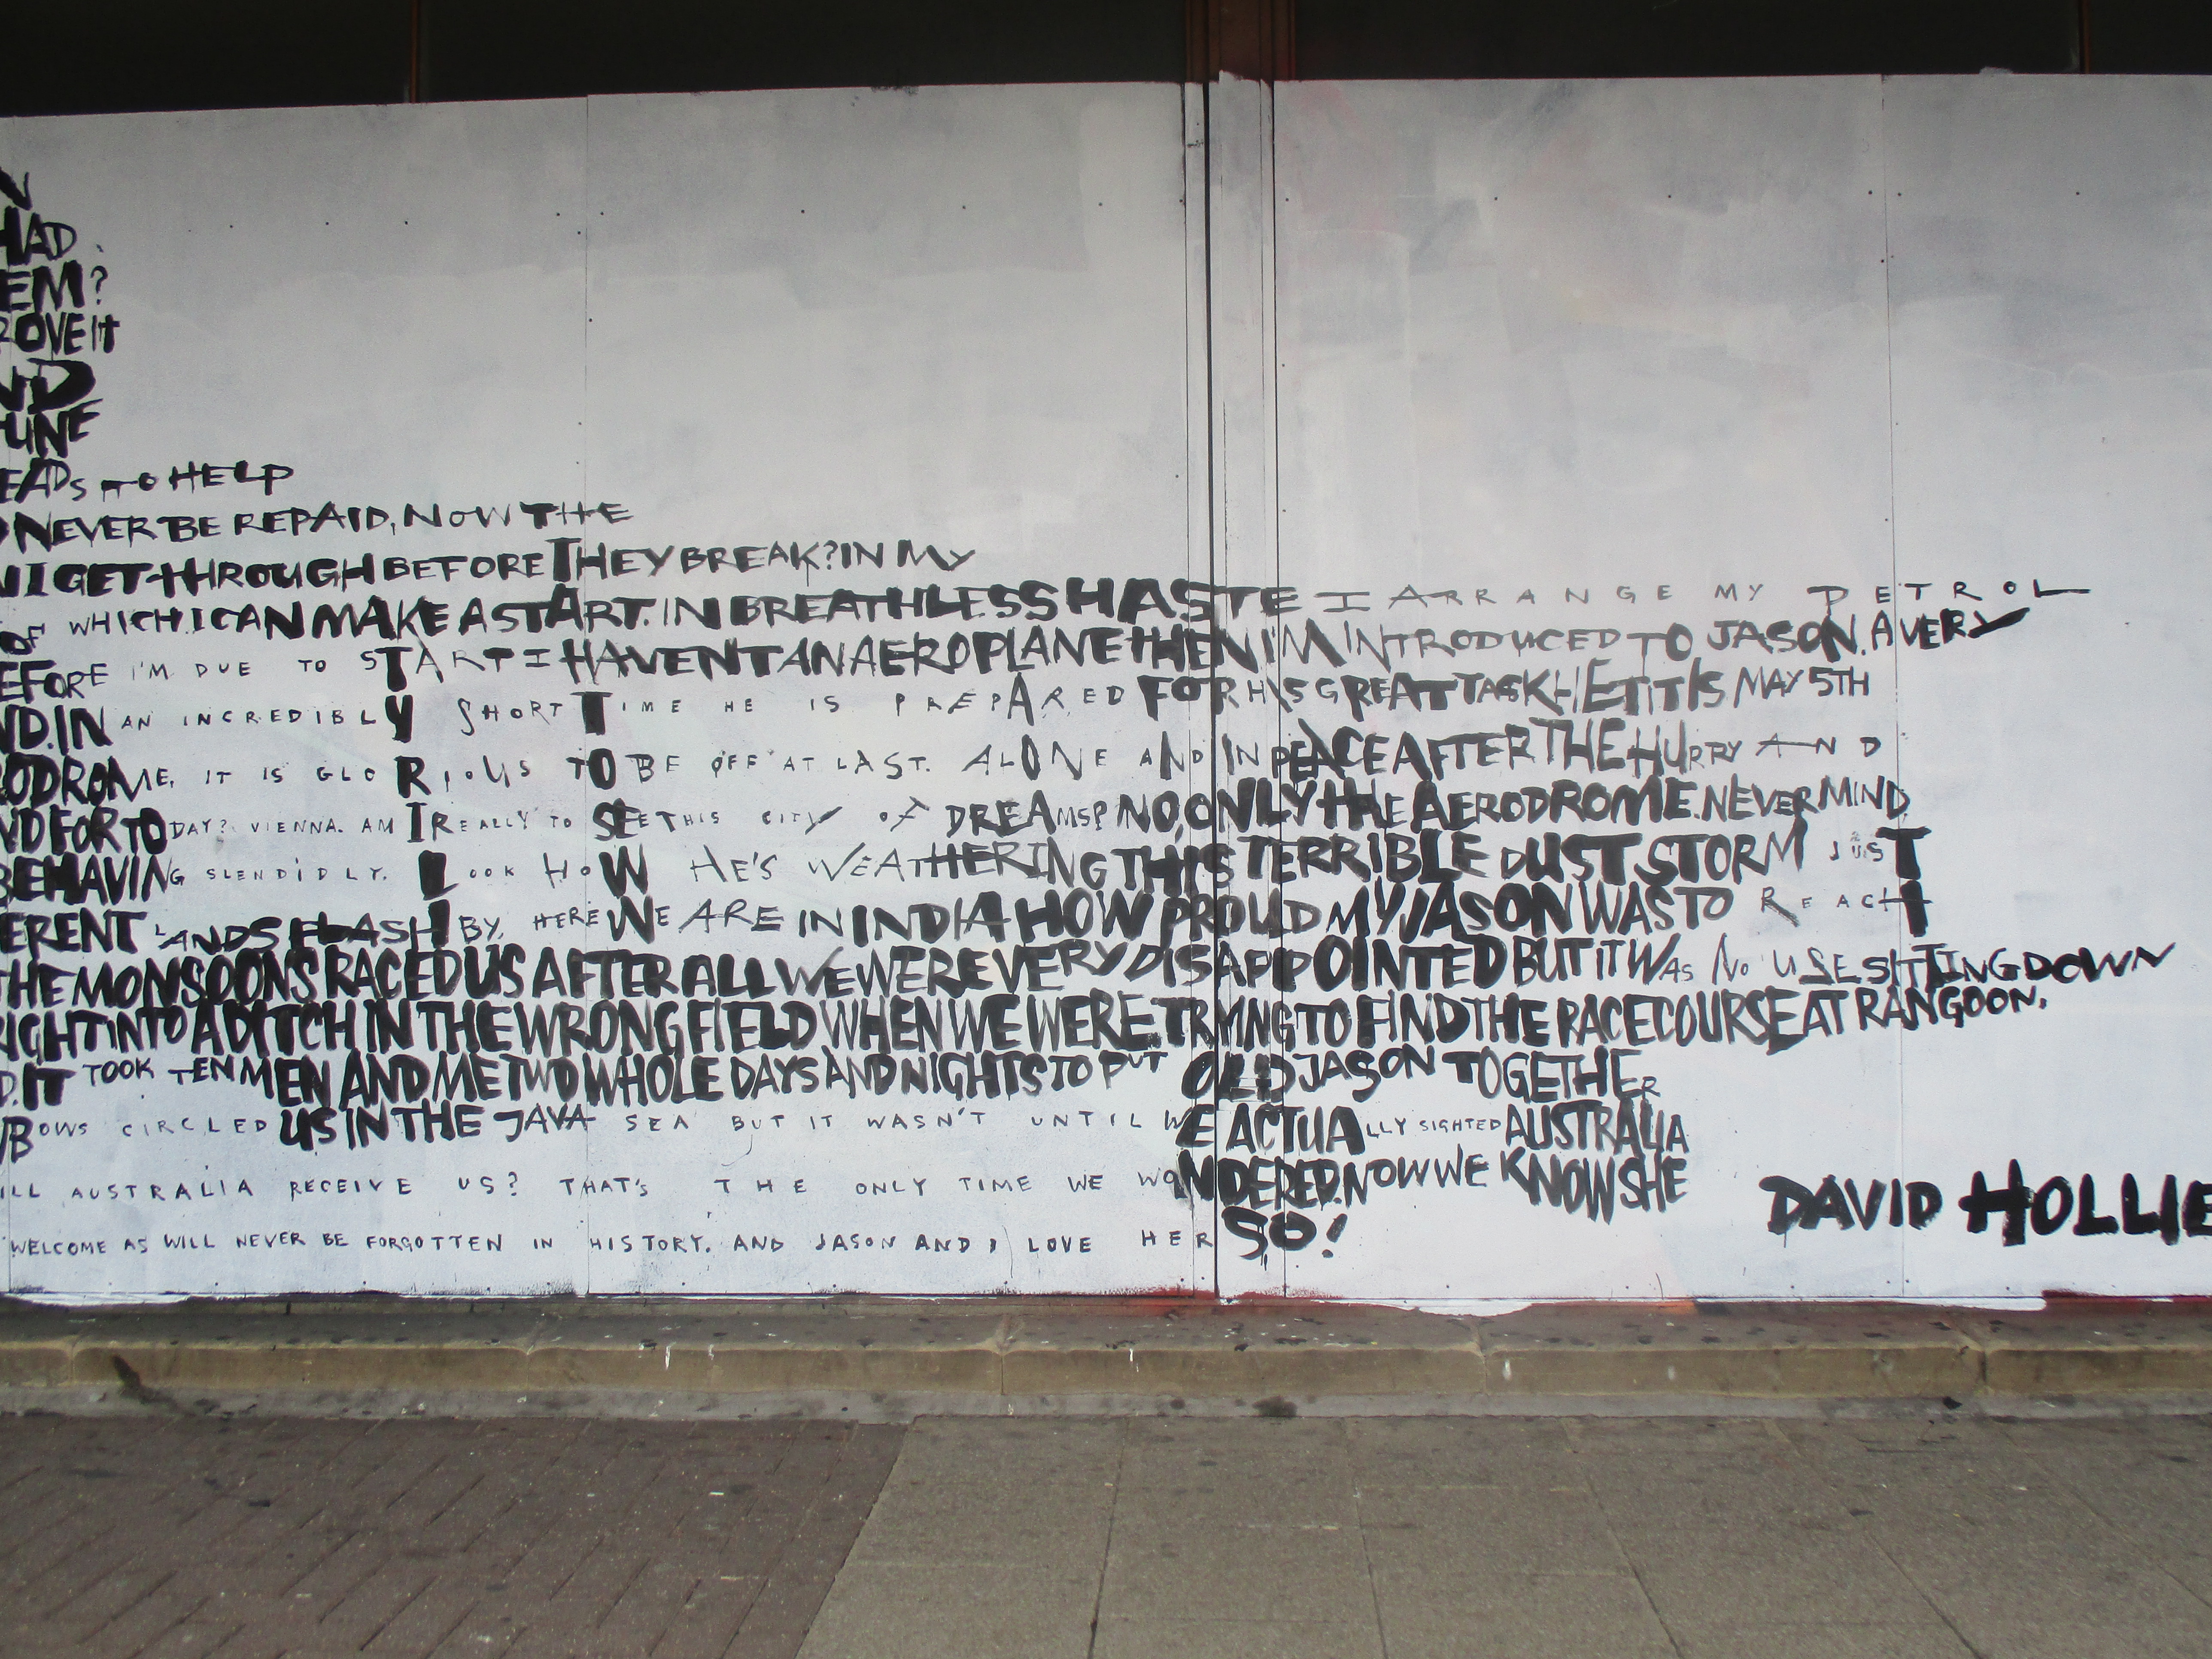 N
HAD
EM?
ROVE IT
ND
TUNE
EADS TO HELP
NEVER BE REPAID, NOW THE
I GET THROUGH BEFORE THEY BREAK? IN MY
OF WHICH I CAN MAKE A START. IN BREATHLESS HASTE I ARRANGE MY PETROL
EFORE I'M DUE TO START I HAVENT AN AEROPLANE THEN I'M INTRODUCED TO JASON. A VERY
ND. IN AN INCREDIBLY SHORT TIME HE IS PREPARED FOR HIS GREAT TASK HETITIS MAY 5TH
ODROME, IT IS GLORIOUS TO BE OFF AT LAST. ALONE AND IN PEACE AFTER THE HURRY AND
ND FOR TODAY? VIENNA. AM I REALLY TO SEE THIS CITY OF DREAMS? NO, ONLY THE AERODROME. NEVER MIND
BEHAVING SLENDIDLY. LOOK HOW HE'S WEATHERING THIS TERRIBLE DUST STORM JUST
ERENT LANDS FLASH BY. HERE WE ARE IN INDIA HOW PROUD MY JASON WAS TO REACH
THE MONSOONS RACED US AFTER ALL WE WERE VERY DISAPPOINTED BUT IT WAS NO USE SITTING DOWN
IGHT INTO A DITCH IN THE WRONG FIELD WHEN WE WERE TRYING TO FIND THE RACECOURSE AT RANGOON.
D. IT TOOK TEN MEN AND ME TWO WHOLE DAYS AND NIGHTS TO PUT OLD JASON TOGETHER
BOWS CIRCLED US IN THE JAVA SEA BUT IT WASN'T UNTIL WE ACTUALLY SIGHTED AUSTRALIA
ILL AUSTRALIA RECEIVE US? THAT'S THE ONLY TIME WE WONDERED. NOW WE KNOW SHE
WELCOME AS WILL NEVER BE FORGOTTEN IN HISTORY. AND JASON AND I LOVE HER SO!
DAVID HOLLIE